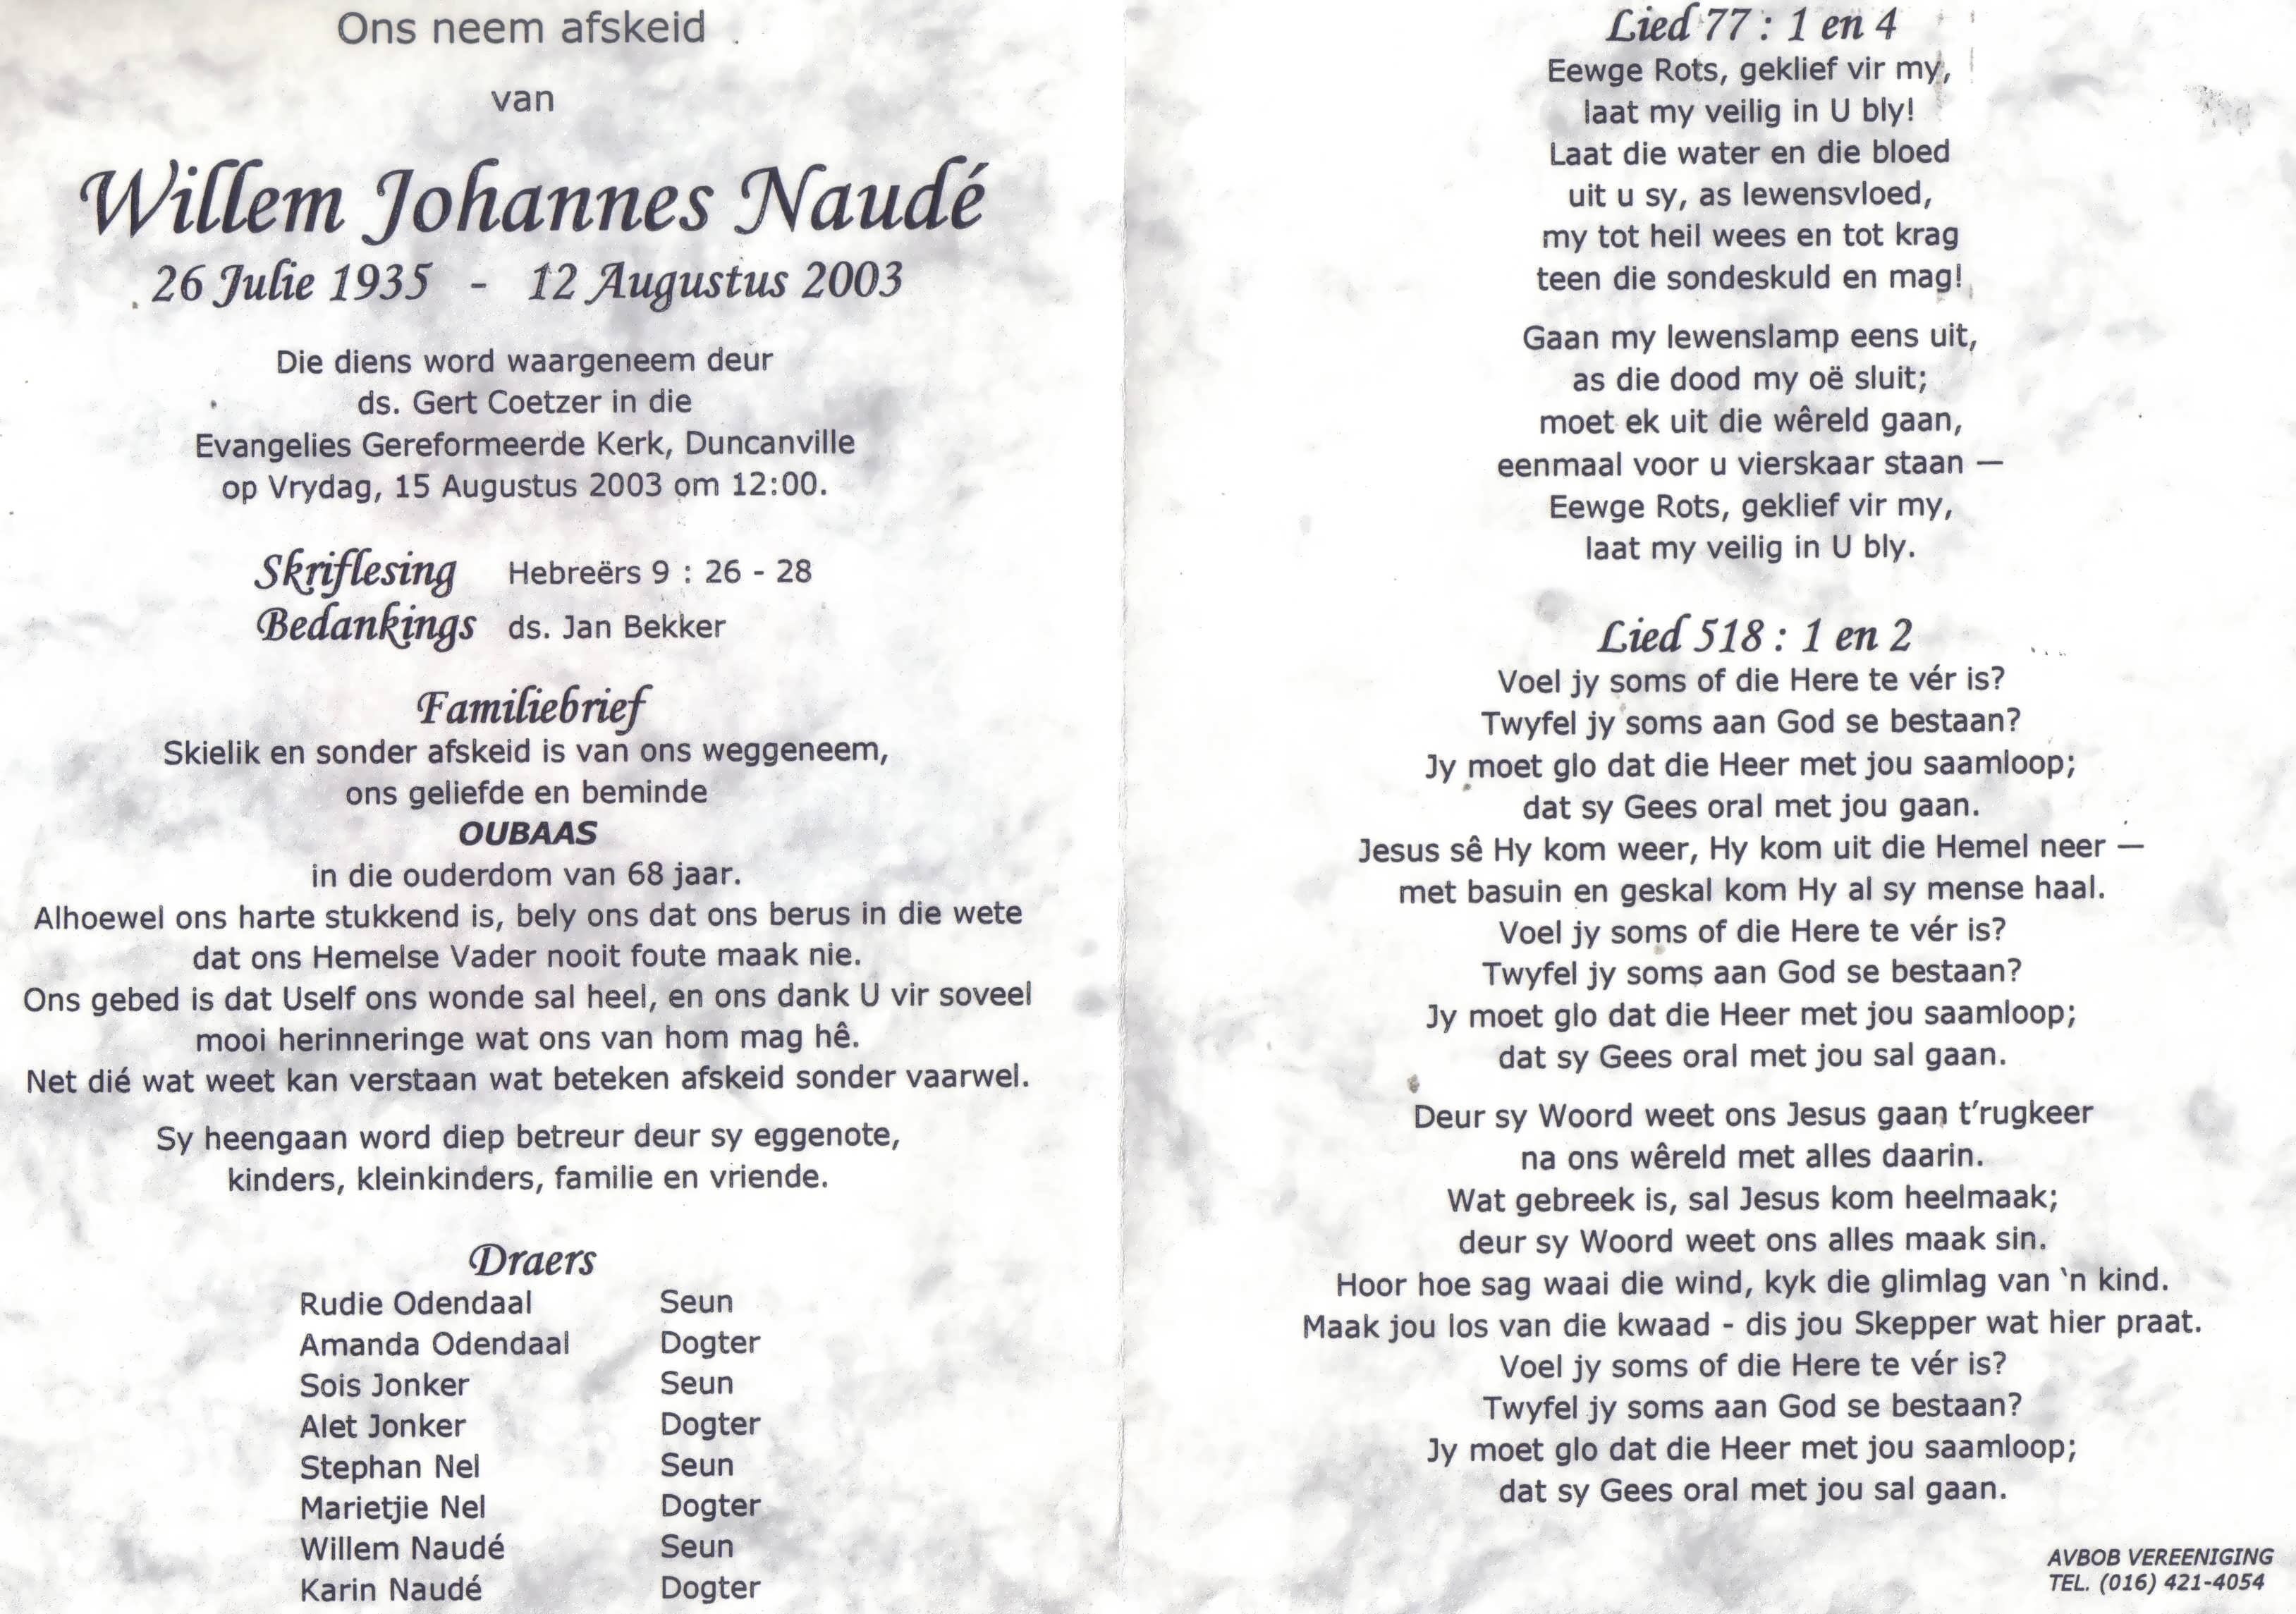 Ons neem afskeid
van
Willem Johannes Naudé
26 Julie 1935 - 12 Augustus 2003
Die diens word waargeneem deur
ds. Gert Coetzer in die
Evangelies Gereformeerde Kerk, Duncanville
op Vrydag, 15 Augustus 2003 om 12:00.
Skriflesing Hebreërs 9 : 26 - 28
Bedankings ds. Jan Bekker
Familiebrief
Skielik en sonder afskeid is van ons weggeneem,
ons geliefde en beminde
OUBAAS
in die ouderdom van 68 jaar.
Alhoewel ons harte stukkend is, bely ons dat ons berus in die wete
dat ons Hemelse Vader nooit foute maak nie.
Ons gebed is dat Uself ons wonde sal heel, en ons dank U vir soveel
mooi herinneringe wat ons van hom mag hê.
Net dié wat weet kan verstaan wat beteken afskeid sonder vaarwel.
Sy heengaan word diep betreur deur sy eggenote,
kinders, kleinkinders, familie en vriende.
Draers
Rudie Odendaal Seun
Amanda Odendaal Dogter
Sois Jonker Seun
Alet Jonker Dogter
Stephan Nel Seun
Marietjie Nel Dogter
Willem Naudé Seun
Karin Naudé Dogter
Lied 77 : 1 en 4
Eewge Rots, geklief vir my,
laat my veilig in U bly!
Laat die water en die bloed
uit u sy, as lewensvloed,
my tot heil wees en tot krag
teen die sondeskuld en mag!
Gaan my lewenslamp eens uit,
as die dood my oë sluit;
moet ek uit die wêreld gaan,
eenmaal voor u vierskaar staan —
Eewge Rots, geklief vir my,
laat my veilig in U bly.
Lied 518 : 1 en 2
Voel jy soms of die Here te vér is?
Twyfel jy soms aan God se bestaan?
Jy moet glo dat die Heer met jou saamloop;
dat sy Gees oral met jou gaan.
Jesus sê Hy kom weer, Hy kom uit die Hemel neer —
met basuin en geskal kom Hy al sy mense haal.
Voel jy soms of die Here te vér is?
Twyfel jy soms aan God se bestaan?
Jy moet glo dat die Heer met jou saamloop;
dat sy Gees oral met jou sal gaan.
Deur sy Woord weet ons Jesus gaan t'rugkeer
na ons wêreld met alles daarin.
Wat gebreek is, sal Jesus kom heelmaak;
deur sy Woord weet ons alles maak sin.
Hoor hoe sag waai die wind, kyk die glimlag van 'n kind.
Maak jou los van die kwaad - dis jou Skepper wat hier praat.
Voel jy soms of die Here te vér is?
Twyfel jy soms aan God se bestaan?
Jy moet glo dat die Heer met jou saamloop;
dat sy Gees oral met jou sal gaan.
AVBOB VEREENIGING
TEL. (016) 421-4054